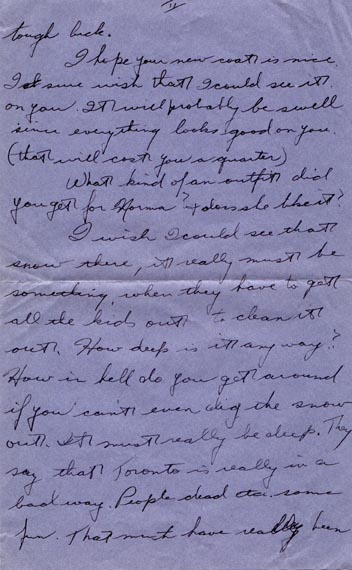 11
tough luck.
I hope your new coat is nice.
I sure wish that I could see it
on you. It will probably be swell
since everything looks good on you.
(that will cost you a quarter)
What kind of an outfit did
you get for Norma? & does she like it?
I wish I could see that
snow there, it really must be
something when they have to get
all the kids out to clean it
out. How deep is it any way?
How in hell do you get around
if you can't even dig the snow
out. It must really be deep. They
say that Toronto is really in a
bad way. People dead etc. some
fun. That must have really been